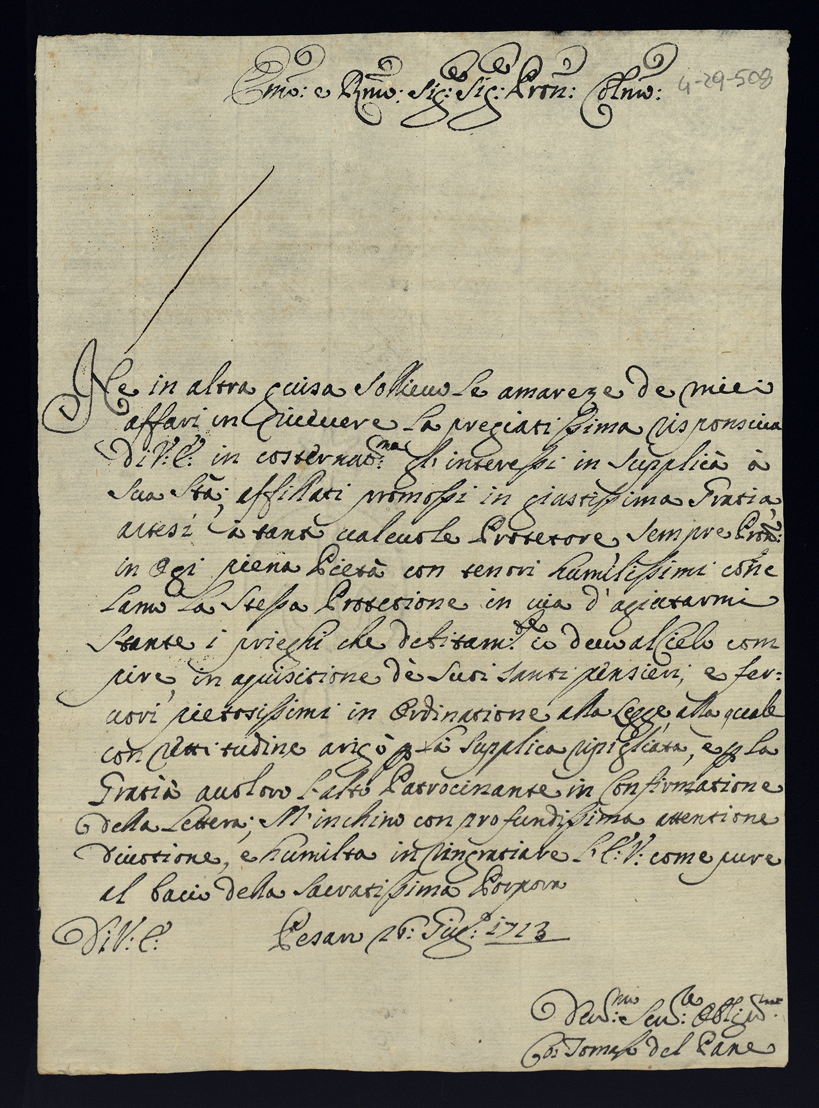 Emo: e Rmo: Sig:e Sig:e Pron: Colmo:
4-29-508
in altra guisa sollievo le amareze de miei
affari in riceuere la pregiatissima risponsiua
di V: E: in costernat:ma gl'interessi in supplica à
Sua Stà; affissati promossi in giustissima Gratia
à tant ualeuole Protetore sempre Pron:
in ogi piena Pietà con tenori humilissimi
lamo la stessa Protetione in uia d'agiutarmi
stante i prieghi che debitam:te io deuo al Cielo com
pire, in aquisitione dè suoi santi pensieri, e fer:
uori pietosissimi in Ordinatione alla Legge, alla quale
con rettitudine la supplica ripigliata, e p la
Gratia l'alto Patrocinante in Confirmatione
della Lettera; M'inchino con profundissima attentione
diuotione, e humilta in ringratiare l'E: V: come pure
al bacio della sacratissima Porpora
Di V: E: Pesaro 26: Giug: 1713
Deu:mo Seru:re Oblig:mo
Tomaso del Pane